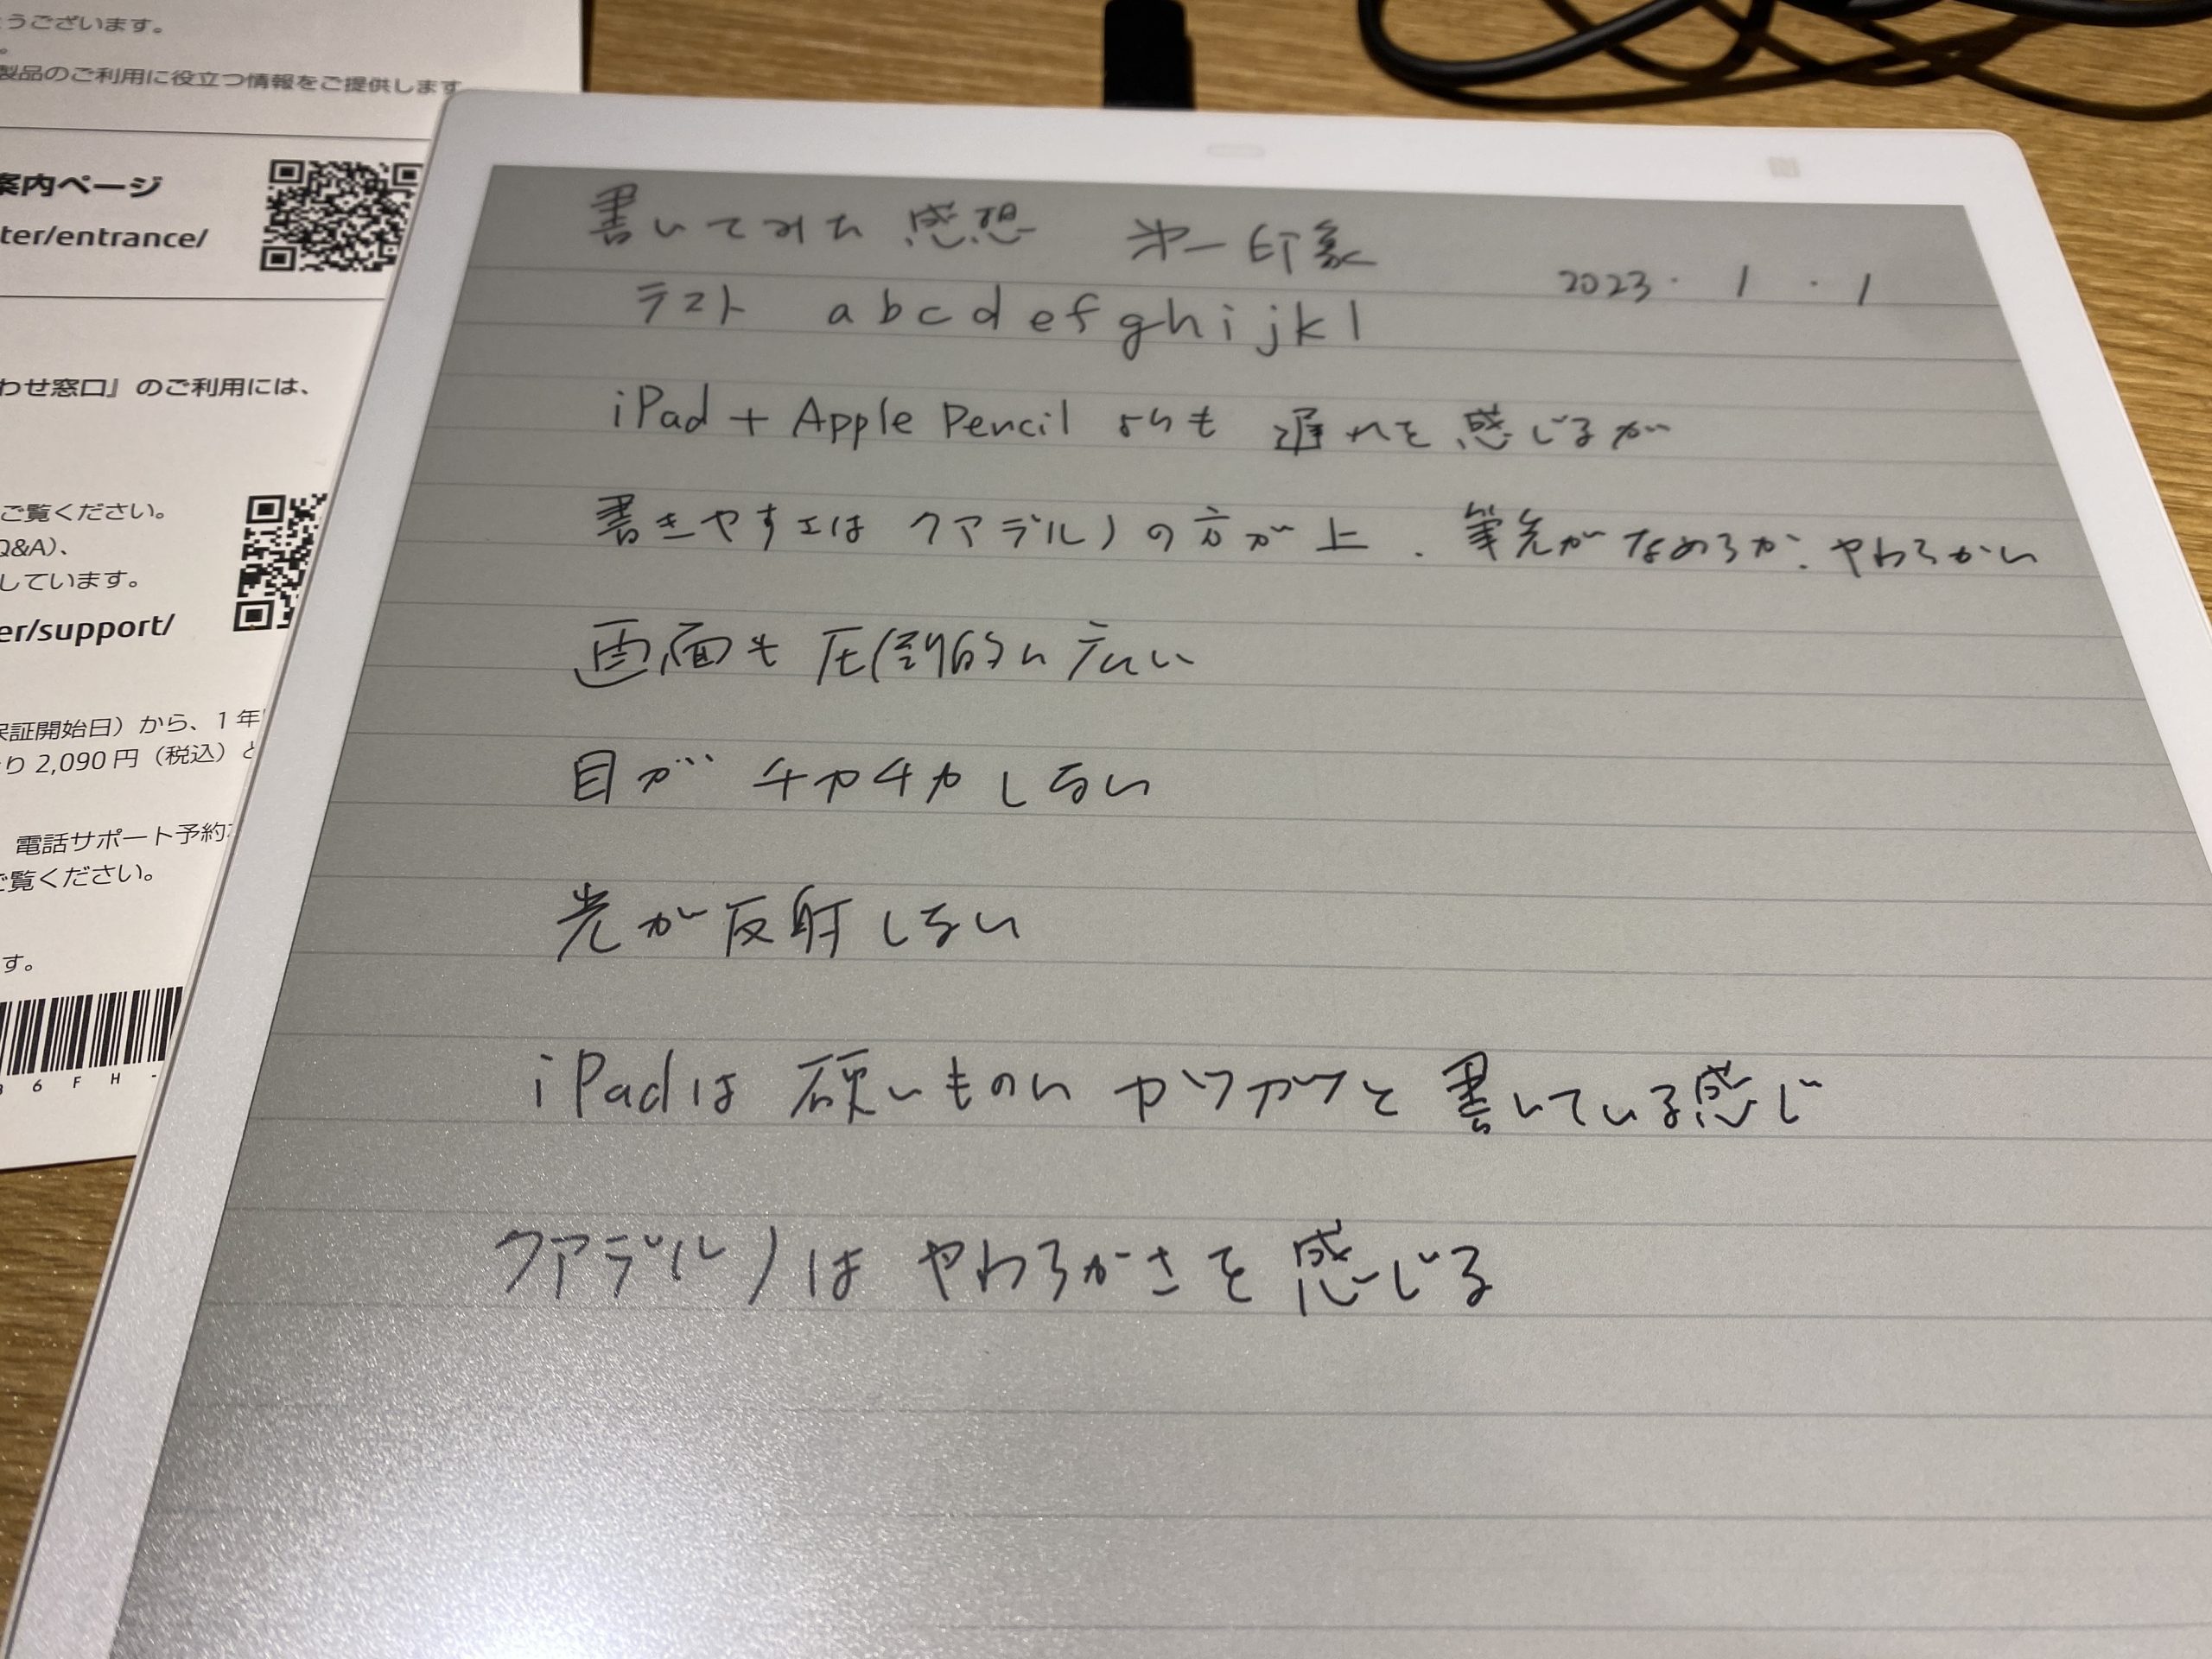 うございます。
製品のご利用に役立つ情報をご提供します
案内ページ
ter/entrance/
わせ窓口』のご利用には、
ご覧ください。
Q&A)、
しています。
er/support/
保証開始日）から、1年
り 2,090円（税込）と
電話サポート予約
ご覧ください。
す。
6 F H -
書いてみた感想 第一印象
2023. 1 . 1
テスト a b c d e f g h i j k l
iPad + Apple Pencil よりも 遅れを感じるが
書きやすさは クアデルノの方が上. 筆先がなめらか. やわらかい
画面も圧倒的に広い
目がチカチカしない
光が反射しない
iPadは硬いものに カツカツと書いている感じ
クアデルノは やわらかさを感じる